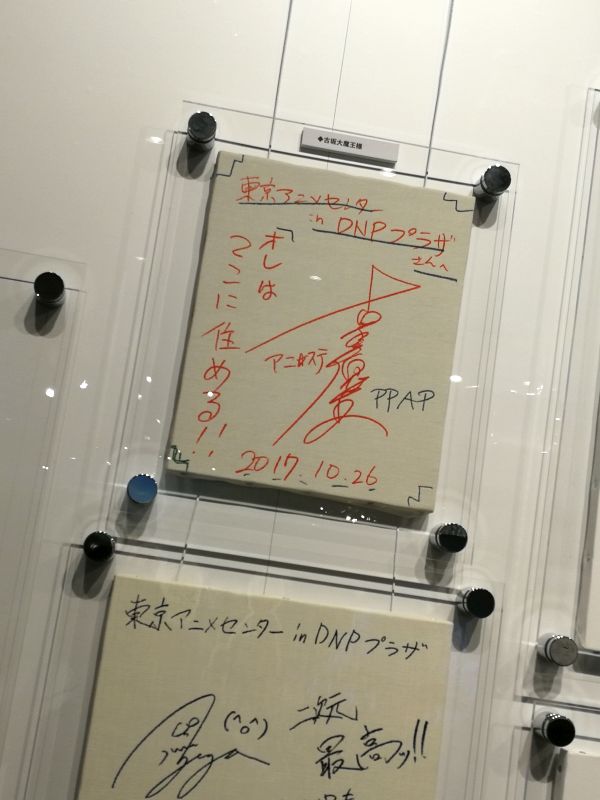 ◆古坂大魔王様
東京アニメセンター
in DNPプラザ
さんへ
オレは
ここに住める!!
アニ★ステ
PPAP
2017.10.26
東京アニメセンター in DNPプラザ
(^o^)
二次元
最高ッ!!